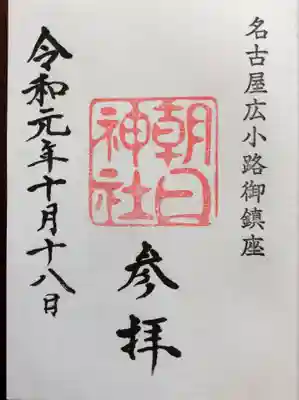 名古屋広小路御鎮座
朝日
神社
参拝
令和元年十月十八日